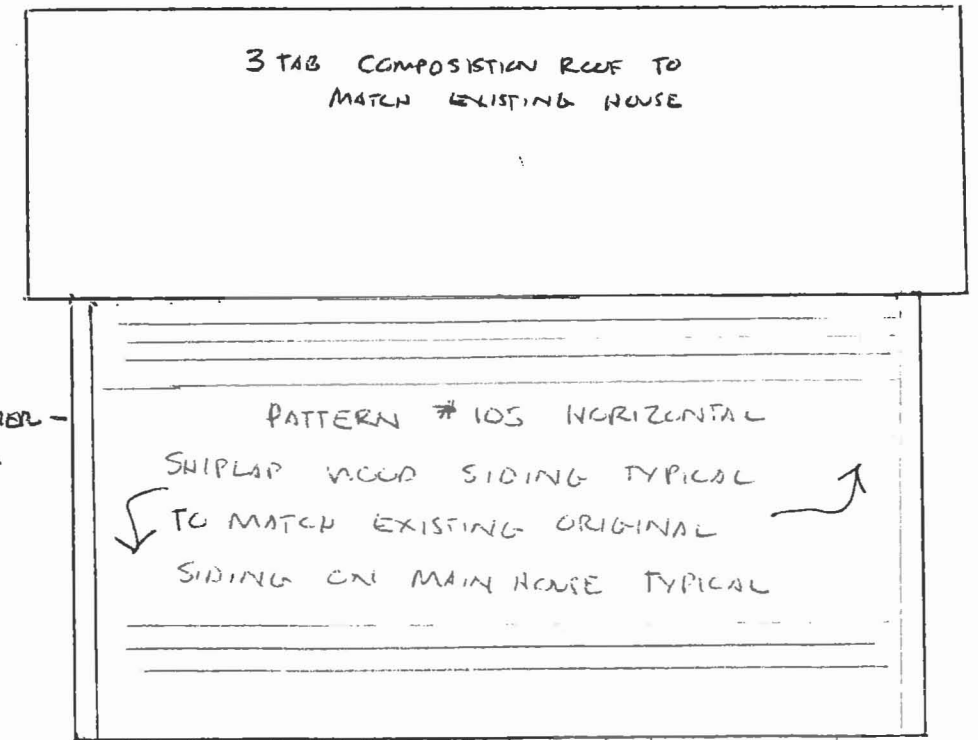 3 TAB COMPOSISTION ROOF TO
MATCH EXISTING HOUSE
PATTERN #105 HORIZONTAL
SHIPLAP WOOD SIDING TYPICAL
TO MATCH EXISTING ORIGINAL
SIDING ON MAIN HOUSE TYPICAL